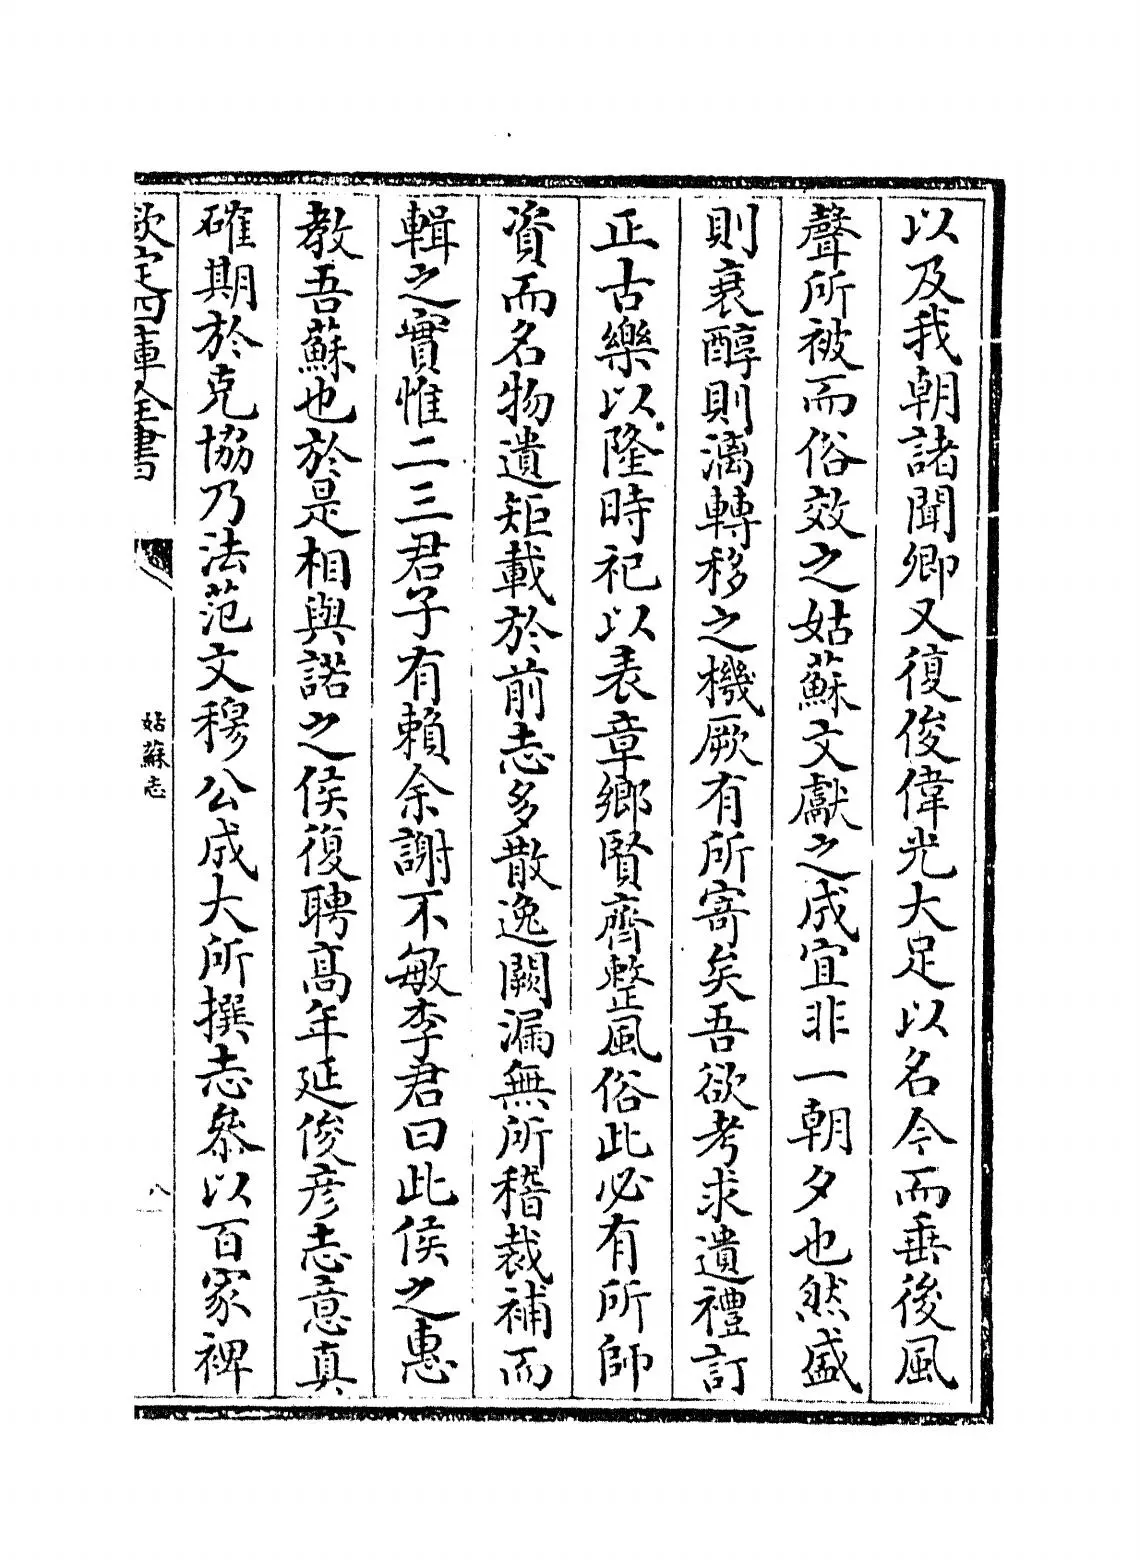 以及我朝諸聞卿又復俊偉光大足以名今而垂後風
聲所被而俗效之姑蘇文獻之成宜非一朝夕也然盛
則衰醇則漓轉移之機厥有所寄矣吾欲考求遺禮訂
正古樂以隆時祀以表章鄉賢齊整風俗此必有所師
資而名物遺矩載於前志多散逸闕漏無所稽裁補而
輯之實惟二三君子有賴余謝不敏李君曰此侯之惠
教吾蘇也於是相與諾之侯復聘髙年延俊彦志意真
確期於克協乃法范文穆公成大所撰志叅以百家裨
欽定四庫全書
姑蘇志
八